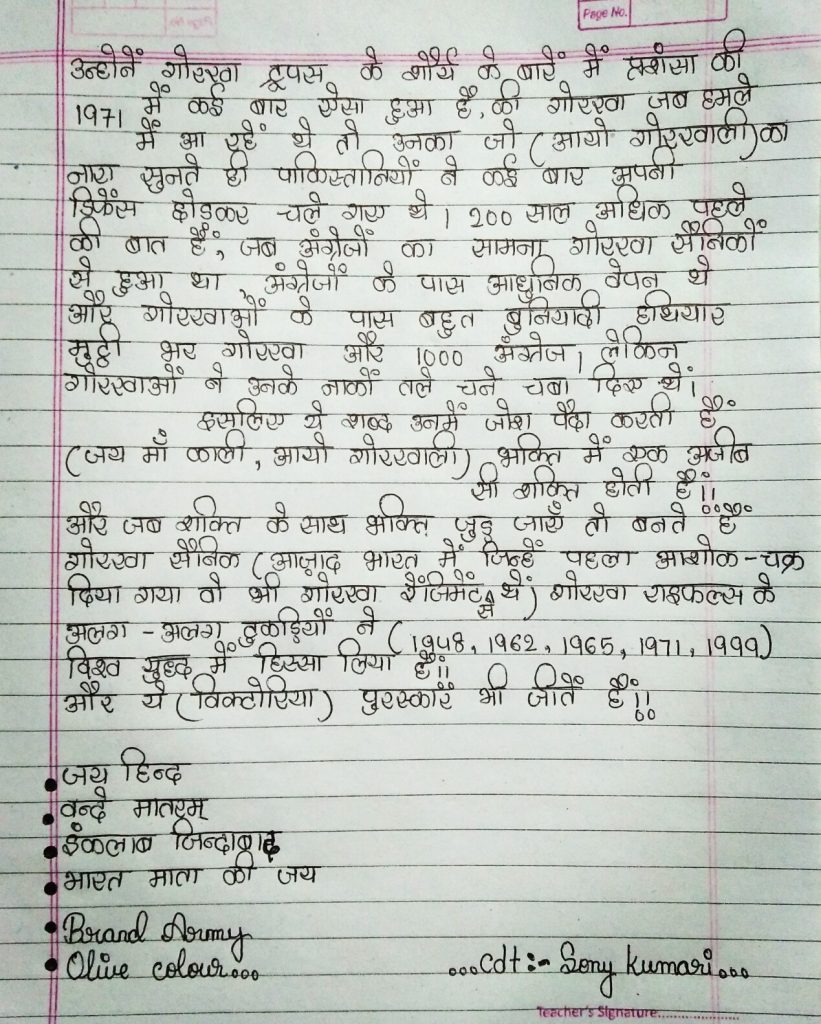 Page No.
उन्होनें गोरखा ट्रूपस के शौर्य के बारें में प्रशंसा की
1971 में कई बार ऐसा हुआ है, की गोरखा जब हमले
में आ रहें थे तो उनका जो (आयो गोरखाली) का
नारा सुनते ही पाकिस्तानियों ने कई बार अपनी
डिफेंस छोडकर चले गए थे। 200 साल अधिक पहले
की बात हैं, जब अंग्रेजों का सामना गोरखा सैनिकों
से हुआ था, अंग्रेजों के पास आधुनिक वेपन थे
और गोरखाओं के पास बहुत बुनियादी हथियार
मुट्ठी भर गोरखा और 1000 अंग्रेज, लेकिन
गोरखाओं ने उनके नाकों तले चने चबा दिए थें।
इसलिए ये शब्द उनमें जोश पैदा करती हैं
(जय माँ काली, आयो गोरखाली) भक्ति में एक अजीब
सी शक्ति होती हैं!!
और जब शक्ति के साथ भक्ति जुड़ जाएँ तो बनते हैं
गोरखा सैनिक (आज़ाद भारत में जिन्हें पहला आशोक-चक्र
दिया गया वो भी गोरखा रैजिमेंट से थें) गोरखा राइफल्स के
अलग - अलग टुकड़ियों ने (1948, 1962, 1965, 1971, 1999)
विश्व युद्ध में हिस्सा लिया हैं!!
और ये (विक्टोरिया) पुरस्कारें भी जीतें हैं!!
• जय हिन्द
• वन्दे मातरम्
• इंकलाब जिन्दाबाद
• भारत माता की जय
• Brand Army
• Olive colour... ...cdt:- Sony kumari...
Teacher's Signature